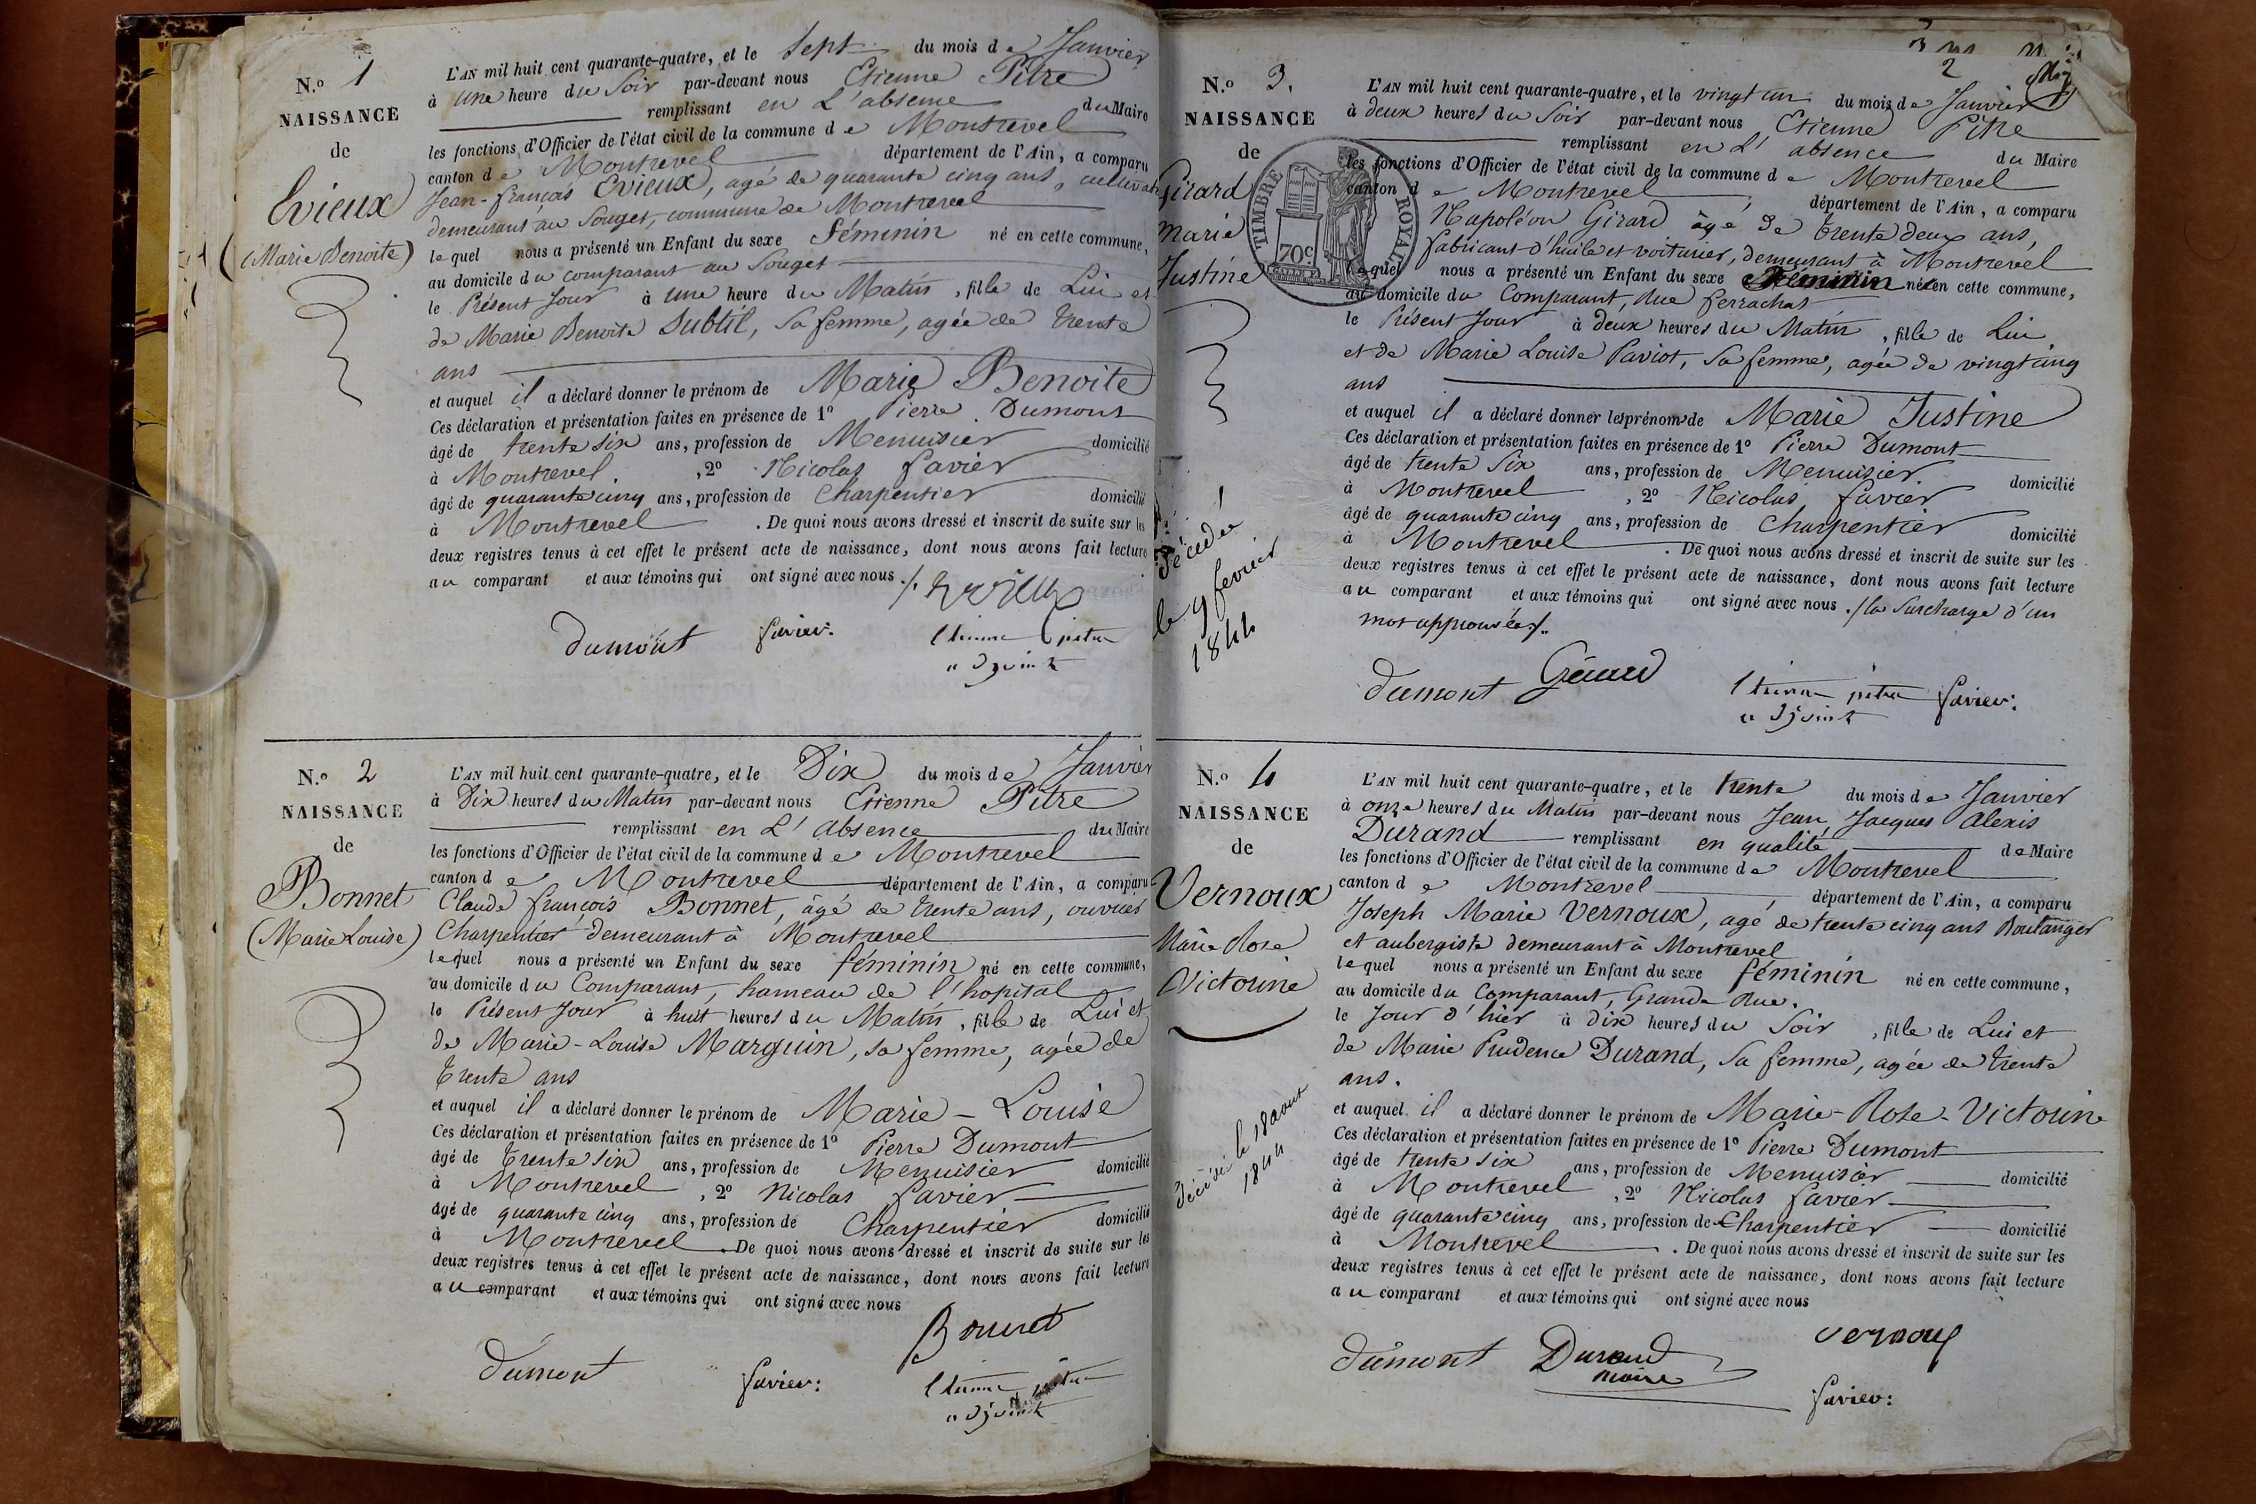 N.º 1
NAISSANCE
de
Evieux
(Marie Benoite)
L'AN mil huit cent quarante-quatre, et le Sept du mois de Janvier
à Une heure du Soir par-devant nous Etienne Pitre
remplissant en L'absence du Maire
les fonctions d'Officier de l'état civil de la commune de Montrevel
canton de Montrevel département de l'Ain, a comparu
Jean-françois Evieux, agé de quarante cinq ans, cultivat
demeurant au Souget, commune de Montrevel
lequel nous a présenté un Enfant du sexe féminin né en cette commune,
au domicile du comparant au Souget
le Présent Jour à Une heure du Matin, fille de Lui et
de Marie Benoite Subtil, Sa femme, agée de trente
ans
et auquel il a déclaré donner le prénom de Marie Benoite
Ces déclaration et présentation faites en présence de 1º Pierre Dumont
âgé de trente six ans, profession de Menuisier domicilié
à Montrevel, 2º Nicolas favier
âgé de quarante cinq ans, profession de Charpentier domicilié
à Montrevel. De quoi nous avons dressé et inscrit de suite sur les
deux registres tenus à cet effet le présent acte de naissance, dont nous avons fait lecture
au comparant et aux témoins qui ont signé avec nous ./. Evieux
dumont favier: Etienne pitre
adjoint
N.º 2
NAISSANCE
de
Bonnet
(Marie Louise)
L'AN mil huit cent quarante-quatre, et le Dix du mois de Janvier
à Dix heures du Matin par-devant nous Etienne Pitre
remplissant en L'absence du Maire
les fonctions d'Officier de l'état civil de la commune de Montrevel
canton de Montrevel département de l'Ain, a comparu
Claude françois Bonnet, âgé de trente ans, ouvrier
Charpentier demeurant à Montrevel
lequel nous a présenté un Enfant du sexe féminin né en cette commune,
au domicile du Comparant, hameau de l'hopital
le Présent Jour à huit heures du Matin, fille de Lui et
de Marie-Louise Marguin, sa femme, agée de
trente ans
et auquel il a déclaré donner le prénom de Marie-Louise
Ces déclaration et présentation faites en présence de 1º Pierre Dumont
âgé de trente six ans, profession de Menuisier domicilié
à Montrevel, 2º Nicolas favier
âgé de quarante cinq ans, profession de Charpentier domicilié
à Montrevel. De quoi nous avons dressé et inscrit de suite sur les
deux registres tenus à cet effet le présent acte de naissance, dont nous avons fait lecture
au comparant et aux témoins qui ont signé avec nous
Bonnet
dumont favier: Etienne pitre
adjoint
2
N.º 3.
NAISSANCE
de
Girard
Marie
Justine
décédée
le 9 fevrier
1844
TIMBRE ROYAL
70c
L'AN mil huit cent quarante-quatre, et le vingt un du mois de Janvier
à deux heures du Soir par-devant nous Etienne Pitre
remplissant en L'absence du Maire
les fonctions d'Officier de l'état civil de la commune de Montrevel
canton de Montrevel, département de l'Ain, a comparu
Napoléon Girard âgé de trente deux ans,
fabricant d'huile et voiturier, demeurant à Montrevel
lequel nous a présenté un Enfant du sexe féminin né en cette commune,
au domicile du Comparant, Rue ferrachat
le Présent Jour à deux heures du Matin, fille de Lui
et de Marie Louise Paviot, Sa femme, agée de vingt cinq
ans
et auquel il a déclaré donner les prénoms de Marie Justine
Ces déclaration et présentation faites en présence de 1º Pierre Dumont
âgé de trente Six ans, profession de Menuisier domicilié
à Montrevel, 2º Nicolas favier
âgé de quarante cinq ans, profession de Charpentier domicilié
à Montrevel. De quoi nous avons dressé et inscrit de suite sur les
deux registres tenus à cet effet le présent acte de naissance, dont nous avons fait lecture
au comparant et aux témoins qui ont signé avec nous ./ la Surcharge d'un
mot approuvée ./.
dumont Girard Etienne pitre favier:
adjoint
N.º 4
NAISSANCE
de
Vernoux
Marie Rose
Victorine
décédée le 18 aout
1844
L'AN mil huit cent quarante-quatre, et le trente du mois de Janvier
à onze heures du Matin par-devant nous Jean Jacques Alexis
Durand remplissant en qualité de Maire
les fonctions d'Officier de l'état civil de la commune de Montrevel
canton de Montrevel, département de l'Ain, a comparu
Joseph Marie Vernoux, agé de trente cinq ans Boulanger
et aubergiste demeurant à Montrevel
lequel nous a présenté un Enfant du sexe féminin né en cette commune,
au domicile du Comparant, Grande Rue.
le Jour d'hier à dix heures du Soir, fille de Lui et
de Marie Prudence Durand, Sa femme, agée de trente
ans.
et auquel il a déclaré donner le prénom de Marie-Rose-Victorine
Ces déclaration et présentation faites en présence de 1º Pierre Dumont
âgé de trente six ans, profession de Menuisier domicilié
à Montrevel, 2º Nicolas favier
âgé de quarante cinq ans, profession de Charpentier domicilié
à Montrevel. De quoi nous avons dressé et inscrit de suite sur les
deux registres tenus à cet effet le présent acte de naissance, dont nous avons fait lecture
au comparant et aux témoins qui ont signé avec nous
vernoux
dumont Durand
maire
favier: